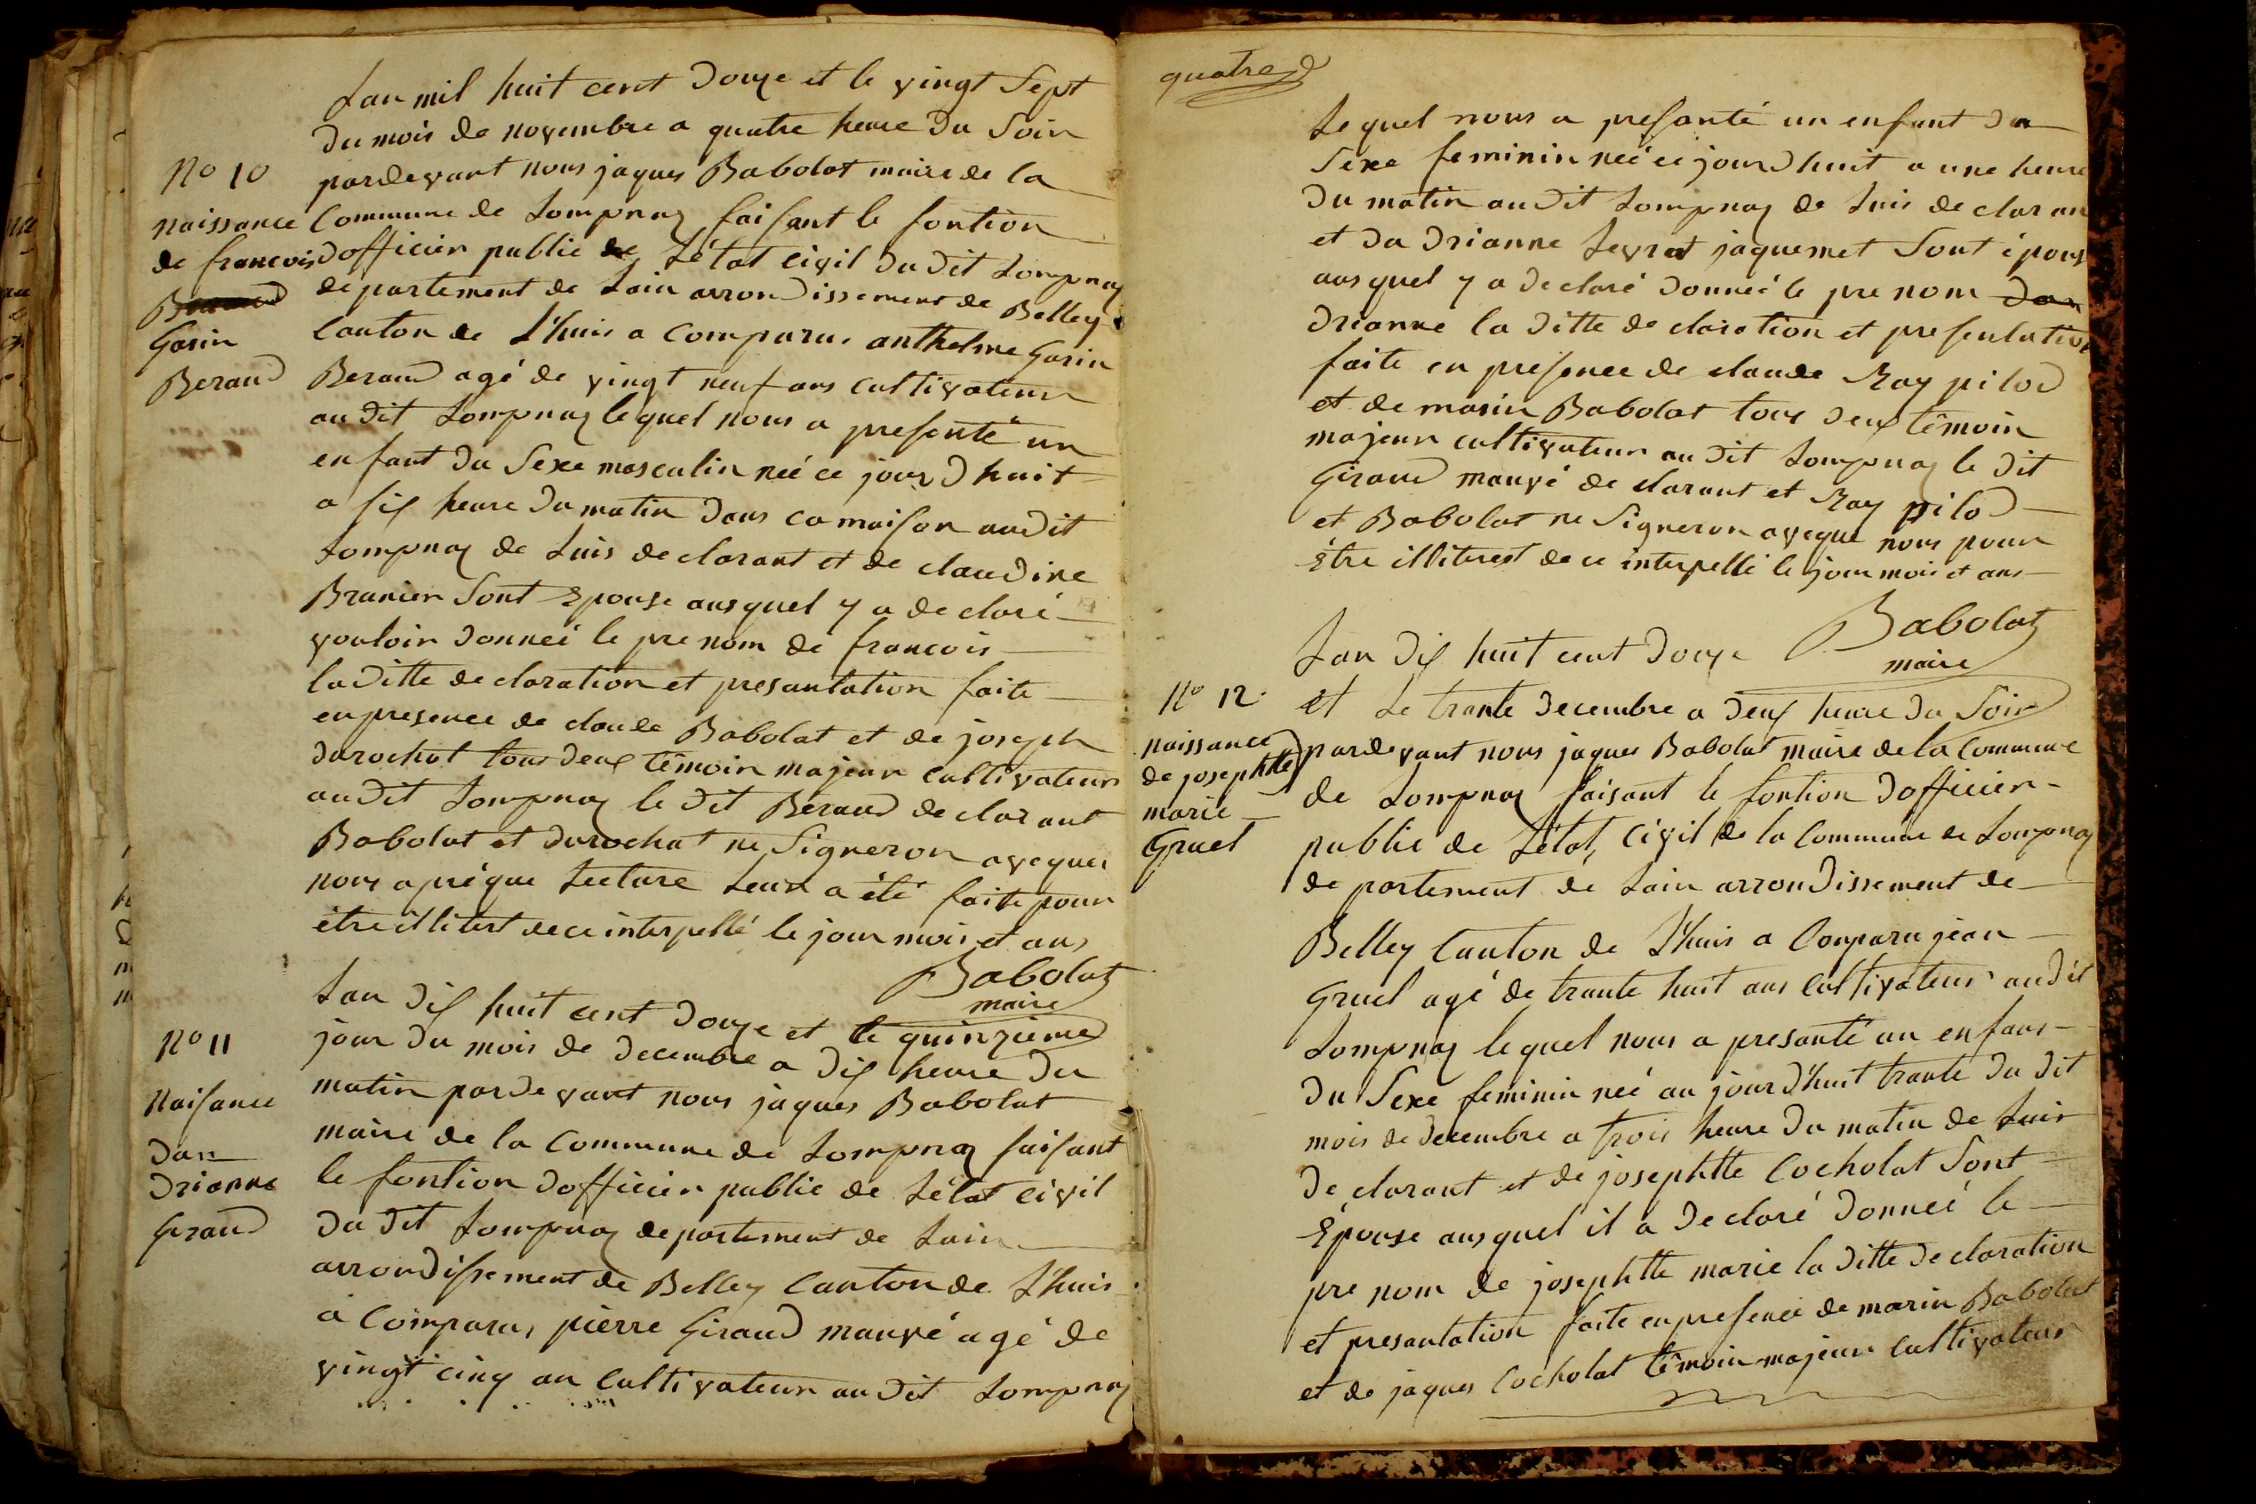 Lan mil huit cent douze et le vingt sept
du mois de novembre a quatre heure du Soir
No 10
pardevant nous jaques Babolat maire de la
naissance
Commune de Lompnaz faisant le fontion
de francois
dofficier public de Létat civil du dit Lompnaz
departement de Lain arrondissement de Belley
Garin
Canton de Lhuis a comparu anthelme Garin
Beraud
Beraud agé de vingt neuf ans cultivateur
au dit Lompnaz lequel nous a presenté un
enfant du Sexe masculin neé ce jour dhuit
a six heure du matin dans ca maison audit
Lompnaz de Luis declarant et de claudine
Branier Sont Epouse ausquel y a declaré
vouloir donneé le pre nom de francois
la ditte declaration et presantation faite
en presence de claude Babolat et de joseph
durochat tous deux têmoin majeur cultivateur
au dit Lompnaz le dit Beraud declarant
Babolat et durochat ne Signeron aveques
nous apréque Lecture Leur a été faite pour
être illiterst de ce interpellé le jour mois et ans
Babolat
maire
Lan dix huit cent douze et le quinzieme
No 11
jour du mois de decembre a dix heure du
Naisance
matin pardevant nous jaques Babolat
maire de la Commune de Lompnaz faisant
dan
drianne
le fontion dofficier public de Létat civil
Giraud
du dit Lompnaz departement de Lain
arrondissement de Belley Canton de Lhuis
a Comparu, pierre Giraud mauvé agé de
vingt cinq an Cultivateur au dit Lompnaz
quatre
Lequel nous a presanté un enfant du
Sexe feminin neé ce jour dhuit a une heure
du matin au dit Lompnaz de Luis de claran
et da drianne Levrat jaquemet Sont épous
ausquel y a declaré donneé le pre nom dan
drianne la ditte declaration et presentation
faite en presence de claude Ray pilod
et de marin Babolat tous deux têmoin
majeur cultivateur au dit Lompnaz le dit
Giraud mauvé de clarant et Ray pilod
et Babolat ne Signeron aveque nous pour
Être illiterest de ce interpellé le jour mois et ans
Babolat
maire
Lan dix huit cent douze
No 12
et Le trante decembre a deux heure du Soir
naissance
pardevant nous jaques Babolat maire de la Commune
de josephtte
marie
de Lompnaz faisant le fontion dofficier
Gruel
public de Létat, civil de la Commune de Lompnaz
departement de Lain arrondissement de
Belley Canton de Lhuis a Comparu jean
Gruel agé de trante huit ans Cultivateur au dit
Lompnaz lequel nous a presanté un enfans
du Sexe feminin neé au jour dhuit trante du dit
mois de decembre a trois heure du matin de Luis
de clarant et de josephtte Cocholat Sont
Épouse ausquel il a declaré donneé le
pre nom de josephtte marie la ditte declaration
et presantation faite en presence de marin Babolat
et de jaques Cocholat têmoin majeur Cultivateur